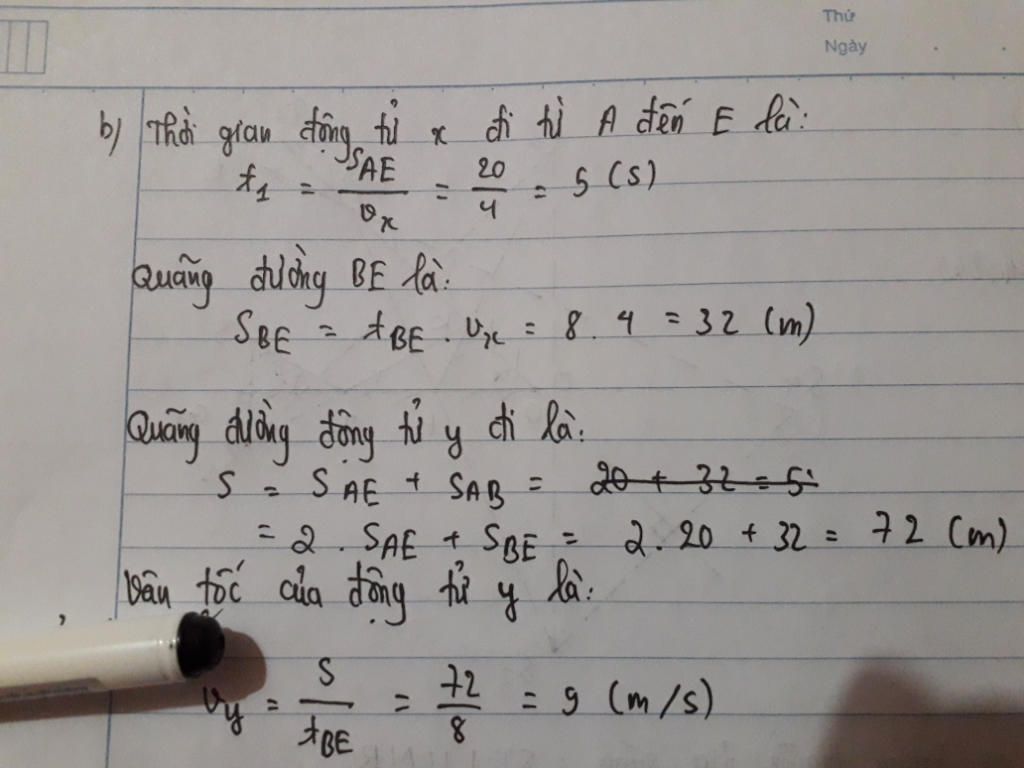 Thứ
Ngày
b) Thời gian động tử x đi từ A đến E là:
t₁ = S_AE / v_x = 20/4 = 5 (s)
Quãng đường BE là:
S_BE = t_BE . v_x = 8 . 4 = 32 (m)
Quãng đường động tử y đi là:
S = S_AE + S_AB = 20 + 32 = 5
= 2 . S_AE + S_BE = 2 . 20 + 32 = 72 (m)
Vân tốc của động tử y là:
v_y = S / t_BE = 72/8 = 9 (m/s)